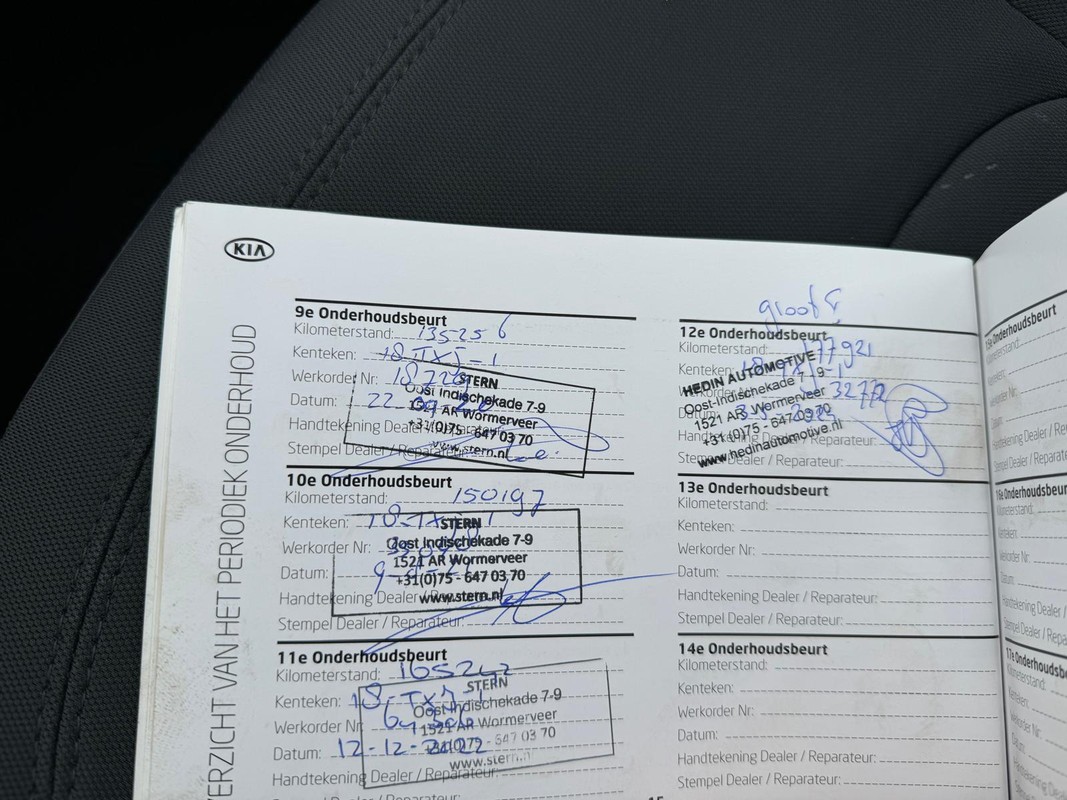 KIA
VERZICHT VAN HET PERIODIEK ONDERHOUD
9e Onderhoudsbeurt
Kilometerstand: 135256
Kenteken: 18-TXJ-1
Werkorder Nr:
Datum: 22
Handtekening Dealer /
Stempel Dealer / Reparateur:
STERN
Oost Indischekade 7-9
1521 AR Wormerveer
+31(0)75 - 647 03 70
www.stern.nl
10e Onderhoudsbeurt
Kilometerstand: 150197
Kenteken: 18-TX
Werkorder Nr:
Datum: 9
Handtekening Dealer /
Stempel Dealer / Reparateur:
STERN
Oost Indischekade 7-9
1521 AR Wormerveer
+31(0)75 - 647 03 70
www.stern.nl
11e Onderhoudsbeurt
Kilometerstand: 165247
Kenteken: 18-TXJ-1
Werkorder Nr:
Datum: 12-12-2022
Handtekening Dealer / Reparateur:
Stempel Dealer / Reparateur:
STERN
Oost-Indischekade 7-9
1521 AR Wormerveer
+31(0)75 - 647 03 70
www.stern.nl
groot
12e Onderhoudsbeurt
Kilometerstand: 177921
Kenteken:
Werkorder Nr: 32772
Datum:
Handtekening Dealer / Reparateur:
Stempel Dealer / Reparateur:
HEDIN AUTOMOTIVE
Oost-Indischekade 7 - 9
1521 AR Wormerveer
+31(0)75 - 647 03 70
www.hedinautomotive.nl
13e Onderhoudsbeurt
Kilometerstand:
Kenteken:
Werkorder Nr:
Datum:
Handtekening Dealer / Reparateur:
Stempel Dealer / Reparateur:
14e Onderhoudsbeurt
Kilometerstand:
Kenteken:
Werkorder Nr:
Datum:
Handtekening Dealer / Reparateur:
Stempel Dealer / Reparateur:
15
15e Onderhoudsbeurt
Kilometerstand:
Kenteken:
Werkorder Nr:
Datum:
Handtekening Dealer / Re
Stempel Dealer / Repara
16e Onderhoudsbeur
Kilometerstand:
Kenteken:
Werkorder Nr:
Datum:
Handtekening Dealer /
Stempel Dealer / Repa
17e Onderhoudsb
Kilometerstand:
Kenteken:
Werkorder Nr:
Datum:
Handtekening De
Stempel Dealer